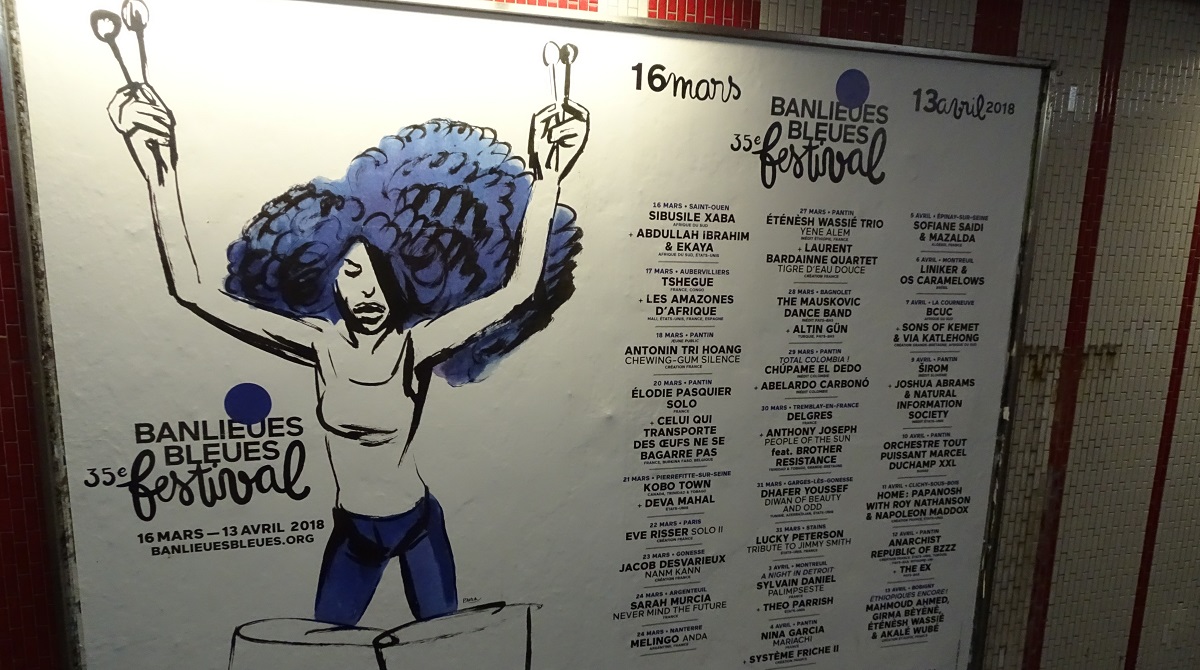 BANLIEUES
BLEUES
35e festival
16 MARS — 13 AVRIL 2018
BANLIEUESBLEUES.ORG
16 mars
BANLIEUES
BLEUES
35e festival
13 avril 2018
16 MARS • SAINT-OUEN
SIBUSILE XABA
AFRIQUE DU SUD
+ ABDULLAH IBRAHIM
& EKAYA
AFRIQUE DU SUD, ÉTATS-UNIS
17 MARS • AUBERVILLIERS
TSHEGUE
FRANCE, CONGO
+ LES AMAZONES
D'AFRIQUE
MALI, ÉTATS-UNIS, FRANCE, ESPAGNE
18 MARS • PANTIN
JEUNE PUBLIC
ANTONIN TRI HOANG
CHEWING-GUM SILENCE
CRÉATION FRANCE
20 MARS • PANTIN
ÉLODIE PASQUIER
SOLO
FRANCE
+ CELUI QUI
TRANSPORTE
DES ŒUFS NE SE
BAGARRE PAS
FRANCE, BURKINA FASO, BELGIQUE
21 MARS • PIERREFITTE-SUR-SEINE
KOBO TOWN
CANADA, TRINIDAD & TOBAGO
+ DEVA MAHAL
ÉTATS-UNIS
22 MARS • PARIS
EVE RISSER SOLO II
CRÉATION FRANCE
23 MARS • GONESSE
JACOB DESVARIEUX
NANM KANN
CRÉATION FRANCE
24 MARS • ARGENTEUIL
SARAH MURCIA
NEVER MIND THE FUTURE
FRANCE
24 MARS • NANTERRE
MELINGO ANDA
ARGENTINE, FRANCE
27 MARS • PANTIN
ÉTÉNÈSH WASSIÉ TRIO
YENE ALEM
INÉDIT ÉTHIOPIE, FRANCE
+ LAURENT
BARDAINNE QUARTET
TIGRE D'EAU DOUCE
CRÉATION FRANCE
28 MARS • BAGNOLET
THE MAUSKOVIC
DANCE BAND
INÉDIT PAYS-BAS
+ ALTIN GÜN
TURQUIE, PAYS-BAS
29 MARS • PANTIN
TOTAL COLOMBIA !
CHÚPAME EL DEDO
INÉDIT COLOMBIE
+ ABELARDO CARBONÓ
INÉDIT COLOMBIE
30 MARS • TREMBLAY-EN-FRANCE
DELGRES
FRANCE
+ ANTHONY JOSEPH
PEOPLE OF THE SUN
feat. BROTHER
RESISTANCE
TRINIDAD & TOBAGO, GRANDE-BRETAGNE
31 MARS • GARGES-LÈS-GONESSE
DHAFER YOUSSEF
DIWAN OF BEAUTY
AND ODD
31 MARS • STAINS
LUCKY PETERSON
TRIBUTE TO JIMMY SMITH
ÉTATS-UNIS, FRANCE
3 AVRIL • MONTREUIL
A NIGHT IN DETROIT
SYLVAIN DANIEL
PALIMPSESTE
FRANCE
+ THEO PARRISH
ÉTATS-UNIS
4 AVRIL • PANTIN
NINA GARCIA
MARIACHI
FRANCE
+ SYSTÈME FRICHE II
CRÉATION FRANCE
5 AVRIL • ÉPINAY-SUR-SEINE
SOFIANE SAIDI
& MAZALDA
ALGÉRIE, FRANCE
6 AVRIL • MONTREUIL
LINIKER &
OS CARAMELOWS
BRÉSIL
7 AVRIL • LA COURNEUVE
BCUC
AFRIQUE DU SUD
+ SONS OF KEMET
& VIA KATLEHONG
CRÉATION GRANDE-BRETAGNE, AFRIQUE DU SUD
9 AVRIL • PANTIN
ŠIROM
INÉDIT SLOVÉNIE
+ JOSHUA ABRAMS
& NATURAL
INFORMATION
SOCIETY
INÉDIT ÉTATS-UNIS
10 AVRIL • PANTIN
ORCHESTRE TOUT
PUISSANT MARCEL
DUCHAMP XXL
SUISSE
11 AVRIL • CLICHY-SOUS-BOIS
HOME : PAPANOSH
WITH ROY NATHANSON
& NAPOLEON MADDOX
CRÉATION FRANCE, ÉTATS-UNIS
12 AVRIL • PANTIN
ANARCHIST
REPUBLIC OF BZZZ
+ THE EX
PAYS-BAS
13 AVRIL • BOBIGNY
ÉTHIOPIQUES ENCORE !
MAHMOUD AHMED,
GIRMA BÈYÈNÈ,
ÉTÉNÈSH WASSIÉ
& AKALÉ WUBÉ
CRÉATION ÉTHIOPIE, FRANCE